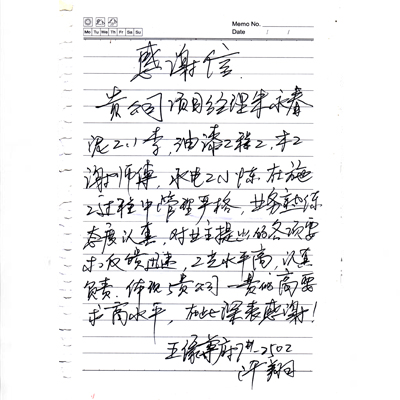 Memo No.
Mo Tu We Th Fr Sa Su
Date / /
感谢信
贵公司项目经理朱永春
泥工小李,油漆工程工,木工
谢师傅,水电工小陈.在施
工过程中管理严格,业务熟练
态度认真,对业主提出的各项要
求反馈迅速,工艺水平高,认真
负责.体现了贵公司一贯的高要
求高水平,在此深表感谢!
王家府7#-2502
许翔